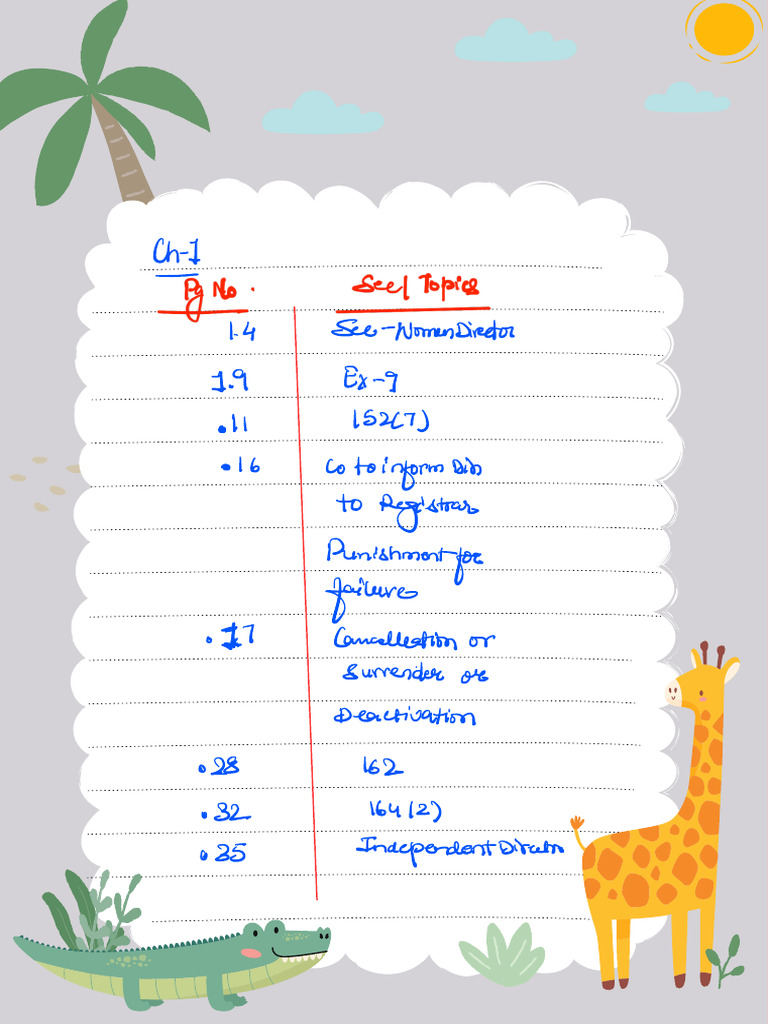 Ch-1
Pg No. Sec/Topics
1.4 Sec-Women Director
1.9 Ex-9
.11 152(7)
.16 Co to inform Din
to Registrar
Punishment for
failure
.17 Cancellation or
Surrender or
Deactivation
.28 162
.32 164(2)
.35 Independent Director